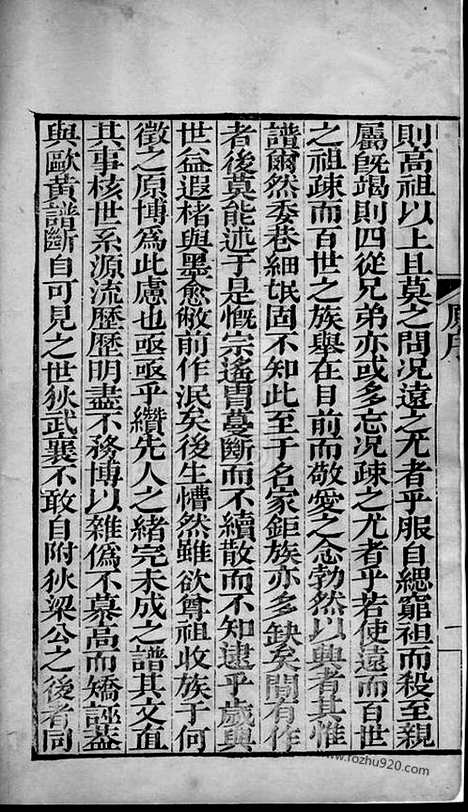 則高祖以上且莫之問况遠之尤者乎服自緦窮袒而殺至親
屬旣竭則四從兄弟亦或多忘况疎之尤者乎若使遠而百世
之祖疎而百世之族舉在目前而敬愛之念勃然以興者其惟
譜爾然委巷細氓固不知此至于名家鉅族亦多缺矣間有作
者後莫能述于是慨宗遙胄蔓斷而不續散而不知逮乎歲與
世益遐楮與墨愈敝前作泯矣後生懵然雖欲尊祖收族于何
徵之原博爲此慮也亟亟乎纘先人之緒完未成之譜其文直
其事核世系源流歷歷明盡不務博以雜僞不慕高而矯誣葢
與歐黃譜斷自可見之世狄武襄不敢自附狄梁公之後者同
原序
一
www.rozhu920.com